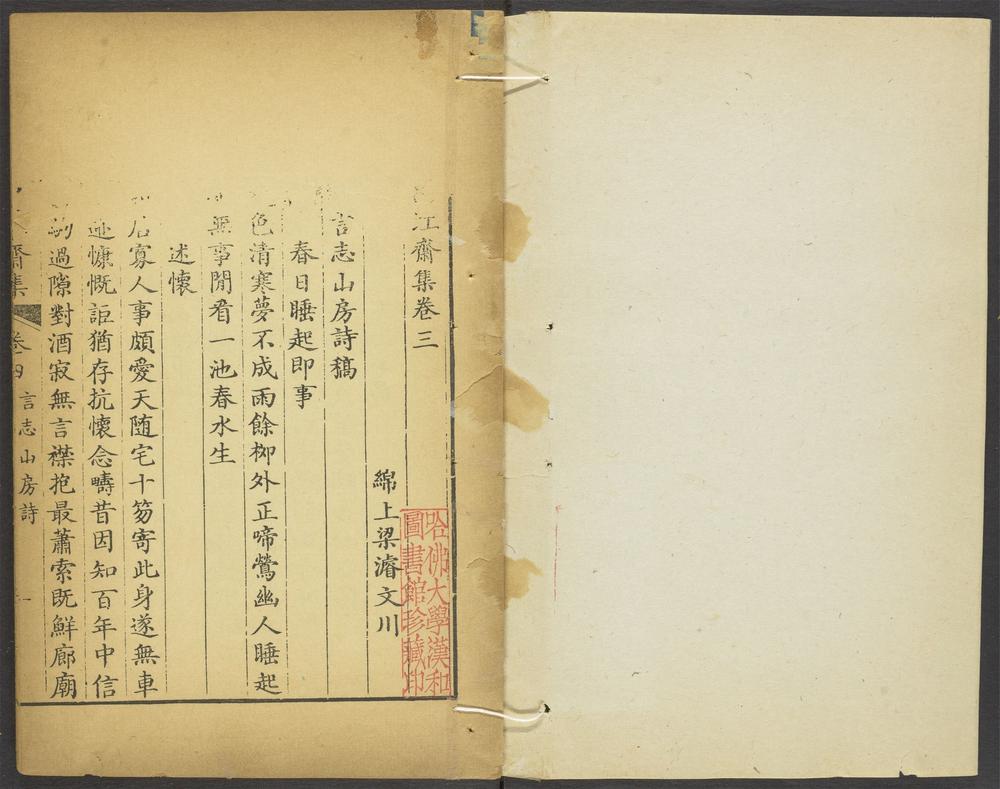 江齋集卷三
綿上梁濬文川
言志山房詩稿
春日睡起即事
色清寒夢不成雨餘柳外正啼鶯幽人睡起
無事閒看一池春水生
述懷
居寡人事頗愛天随宅十笏寄此身遂無車
迹慷慨詎猶存抗懷念疇昔因知百年中信
過隙對酒寂無言襟抱最蕭索既鮮廊廟
齋集 卷四 言志山房詩 一
哈佛大學漢和
圖書館珍藏印